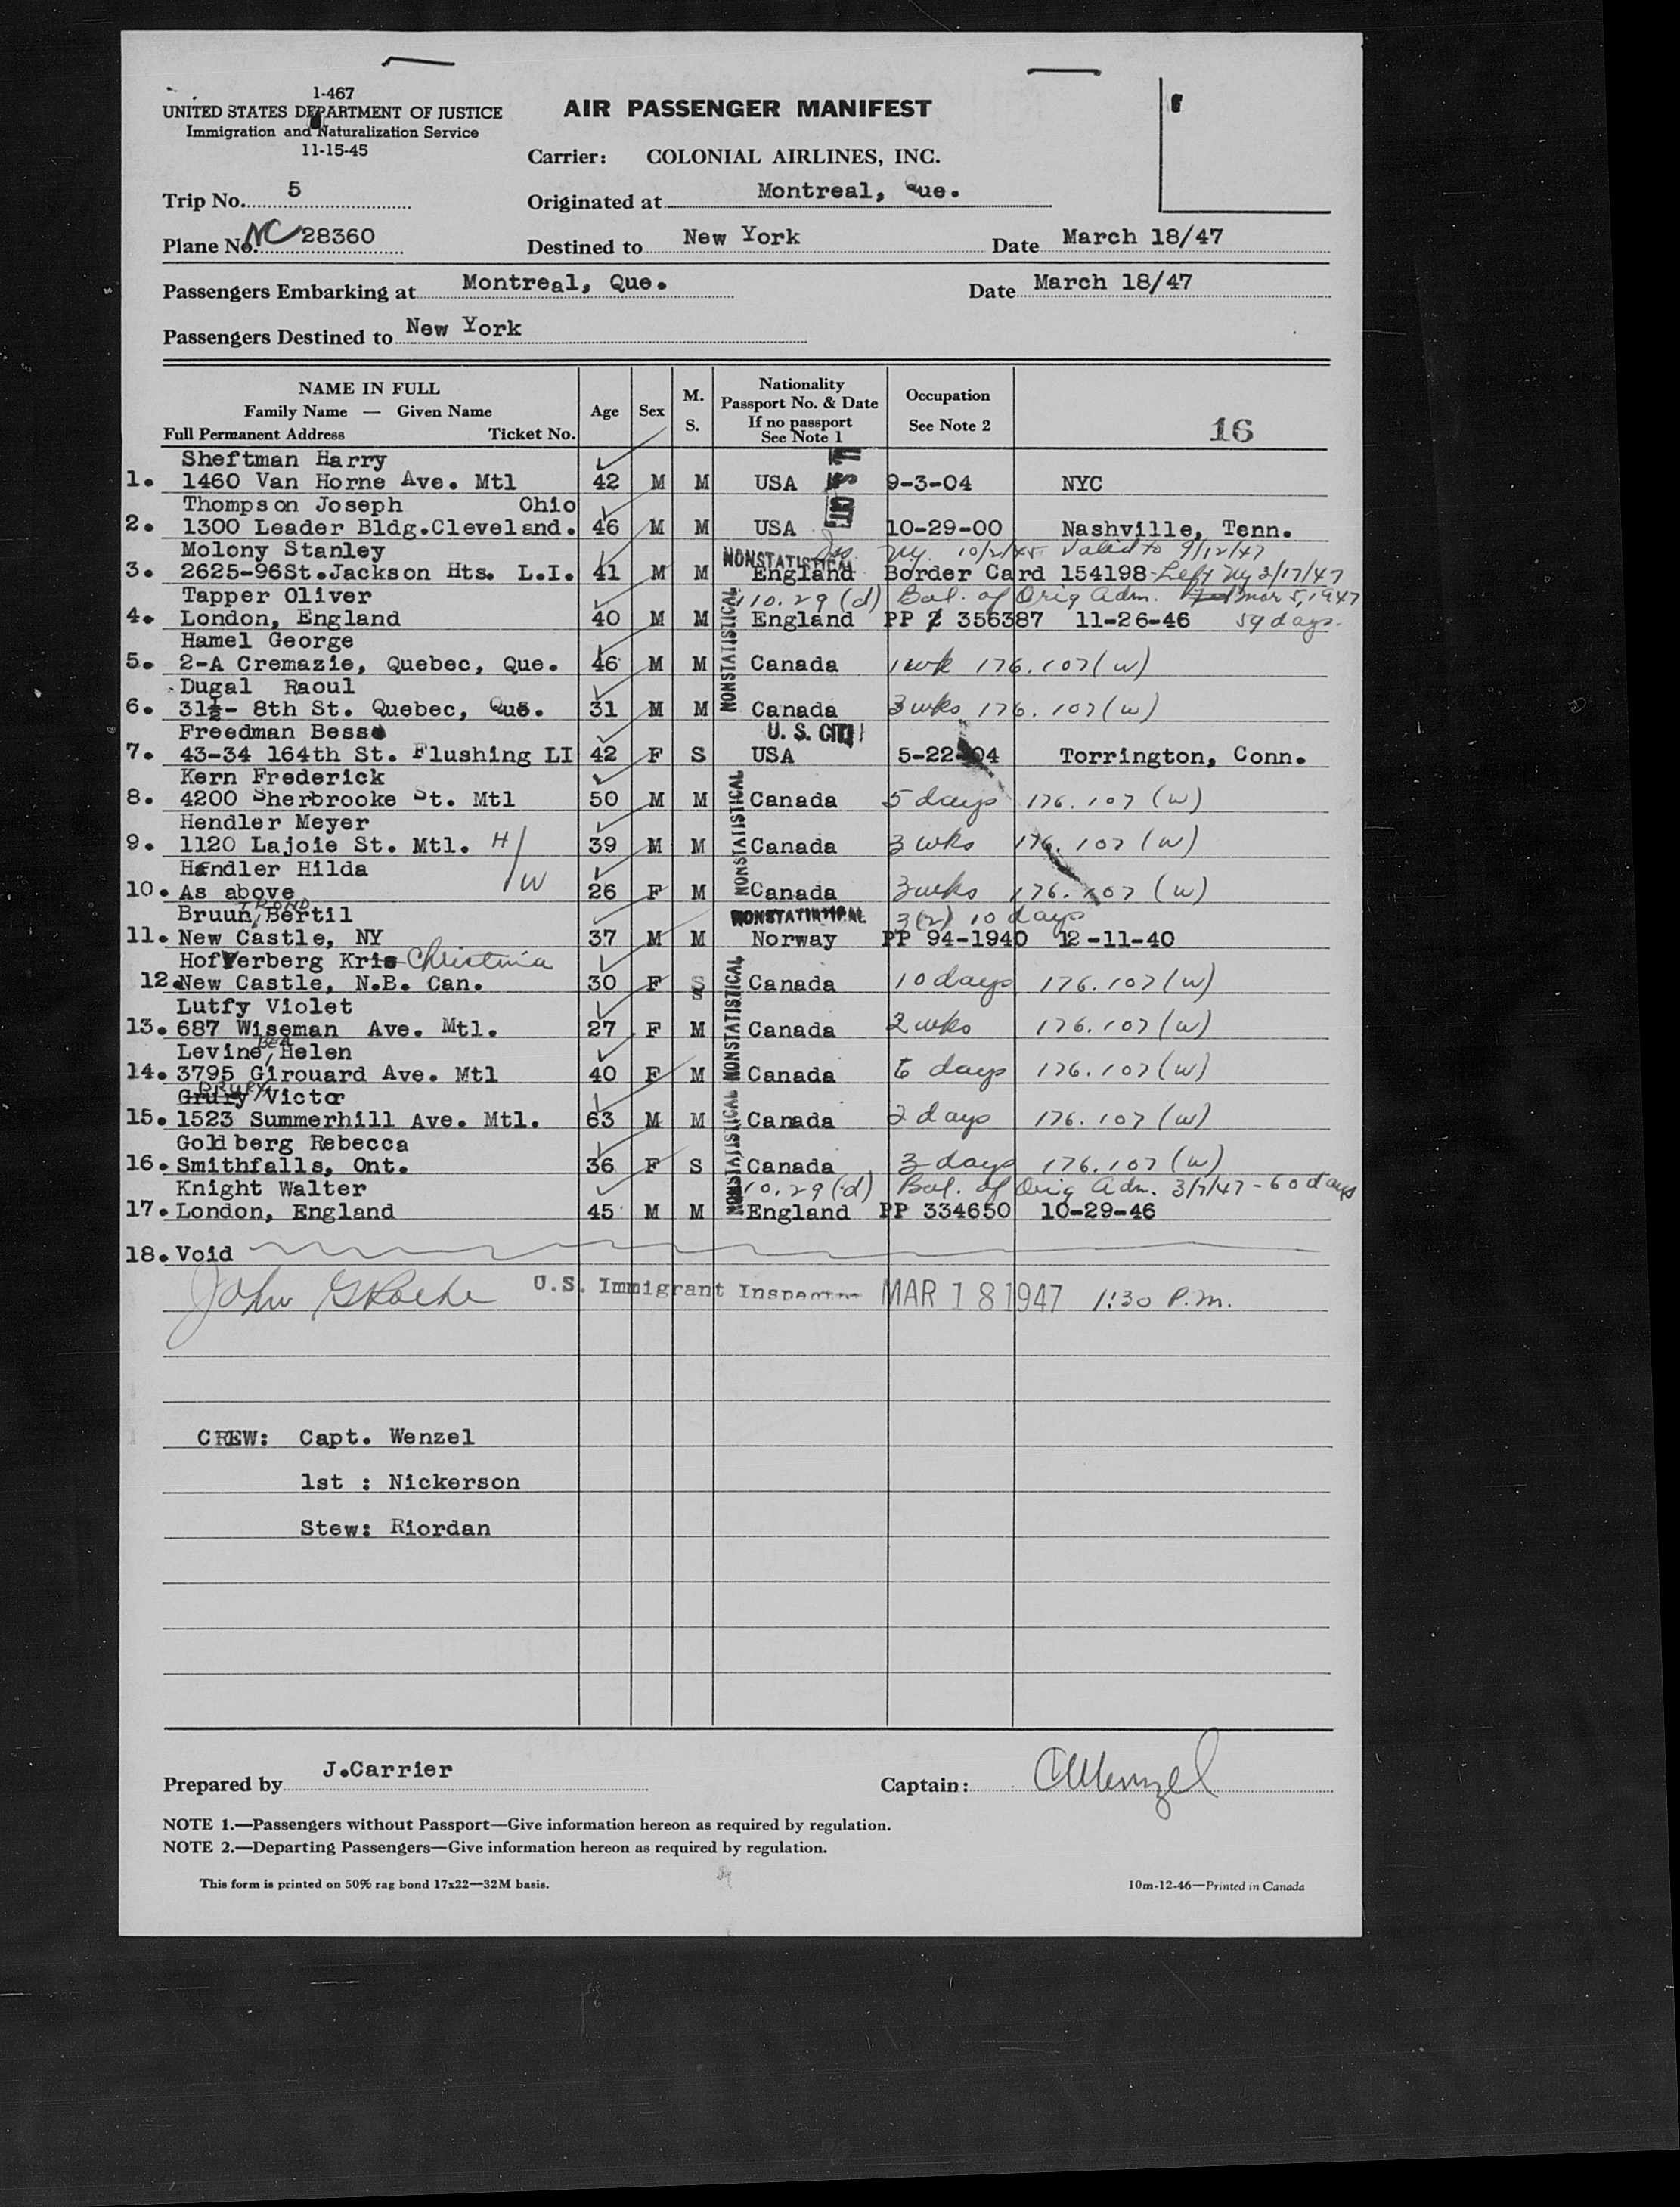 1-467
UNITED STATES DEPARTMENT OF JUSTICE
Immigration and Naturalization Service
11-15-45
AIR PASSENGER MANIFEST
Carrier: COLONIAL AIRLINES, INC.
Trip No. 5
Originated at Montreal, Que.
Plane No. NC 28360
Destined to New York
Date March 18/47
Passengers Embarking at Montreal, Que.
Date March 18/47
Passengers Destined to New York
NAME IN FULL
Family Name — Given Name
Full Permanent Address Ticket No.
Age
Sex
M.
S.
Nationality
Passport No. & Date
If no passport
See Note 1
Occupation
See Note 2
16
Sheftman Harry
1. 1460 Van Horne Ave. Mtl 42 M M USA 9-3-04 NYC
Thompson Joseph Ohio
2. 1300 Leader Bldg.Cleveland. 46 M M USA 10-29-00 Nashville, Tenn.
Molony Stanley NONSTATISTICAL Iss. NY. 10/2/45 Valid to 9/12/47
3. 2625-96St.Jackson Hts. L.I. 41 M M England Border Card 154198-Left NY 2/17/47
Tapper Oliver 110.29 (d) Bal. of Orig Adm. Mar 5, 1947
4. London, England 40 M M England PP 356387 11-26-46 59 days.
NONSTATISTICAL
Hamel George
5. 2-A Cremazie, Quebec, Que. 46 M M Canada 1 wk 176.107(w)
Dugal Raoul
6. 31½- 8th St. Quebec, Que. 31 M M Canada 3 wks 176.107(w)
Freedman Besse U. S. CIT
7. 43-34 164th St. Flushing LI 42 F S USA 5-22-04 Torrington, Conn.
Kern Frederick
8. 4200 Sherbrooke St. Mtl 50 M M Canada 5 days 176.107 (w)
NONSTATISTICAL
Hendler Meyer
9. 1120 Lajoie St. Mtl. H/W 39 M M Canada 3 wks 176.107 (w)
Hendler Hilda
10. As above 26 F M Canada 3 wks 176.107 (w)
Bruun, TROND Bertil NONSTATISTICAL 3(2) 10 days
11. New Castle, NY 37 M M Norway PP 94-1940 12-11-40
Hofverberg Kris Christina
12. New Castle, N.B. Can. 30 F S Canada 10 days 176.107(w)
NONSTATISTICAL
Lutfy Violet
13. 687 Wiseman Ave. Mtl. 27 F M Canada 2 wks 176.107(w)
Levine, BEA Helen
14. 3795 Girouard Ave. Mtl 40 F M Canada 6 days 176.107(w)
Grury DRURY Victor
15. 1523 Summerhill Ave. Mtl. 63 M M Canada 2 days 176.107 (w)
NONSTATISTICAL
Goldberg Rebecca
16. Smithfalls, Ont. 36 F S Canada 3 days 176.107 (w)
Knight Walter 110.29 (d) Bal. of Orig Adm. 3/7/47 - 60 days
17. London, England 45 M M England PP 334650 10-29-46
18. Void
John G Roche U.S. Immigrant Inspector MAR 18 1947 1:30 P.M.
CREW: Capt. Wenzel
1st : Nickerson
Stew: Riordan
Prepared by J.Carrier
Captain: CWenzel
NOTE 1.—Passengers without Passport—Give information hereon as required by regulation.
NOTE 2.—Departing Passengers—Give information hereon as required by regulation.
This form is printed on 50% rag bond 17x22—32M basis.
10m-12-46—Printed in Canada